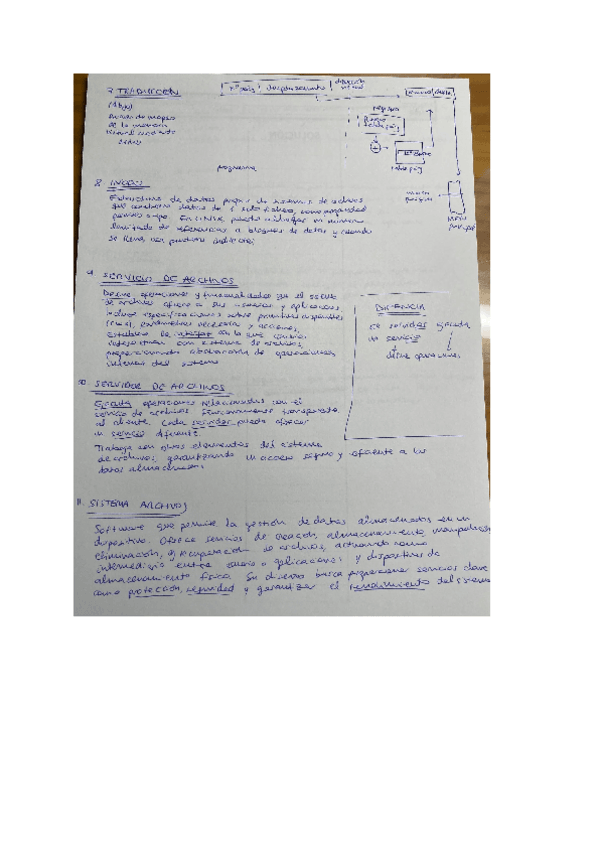 7. TRADUCCION
Nº pág desplazamiento dirección virtual
(MMU)
de la memoria
páginas
base
tabla pág
+
programa
8. INODE
Estructuras de datos propias de sistemas de archivos
que contienen datos de 1 solo fichero, como propiedad
permisos, grupo. En UNIX, puede almacenar un número
limitado de referencias a bloques de datos y cuando
se llena usa punteros indirectos
9. SERVICIO DE ARCHIVOS
Define operaciones y funcionalidades que el sistema
de archivos ofrece a sus usuarios y aplicaciones.
Incluye especificaciones sobre primitivas disponibles
parámetros necesarios y acciones,
establece la interfaz con la que clientes
interactúan con sistema de archivos,
proporcionando abstracción de operaciones
internas del sistema
DIFERENCIA
El servidor ejecuta
un servicio
define operaciones
10. SERVIDOR DE ARCHIVOS
Ejecuta operaciones relacionadas con el
servicio de archivos. Funcionamiento transparente
al cliente. Cada servidor puede ofrecer
un servicio diferente
Trabaja con otros elementos del sistema
de archivos, garantizando un acceso seguro y eficiente a los
datos almacenados.
11. SISTEMA ARCHIVOS
Software que permite la gestión de datos almacenados en un
dispositivo. Ofrece servicios de creación, almacenamiento, manipulación
eliminación, y recuperación de archivos, actuando como
intermediario entre usuario o aplicaciones y dispositivos de
almacenamiento física. Su diseño busca proporcionar servicios clave
como protección, seguridad y garantizar el rendimiento del sistema